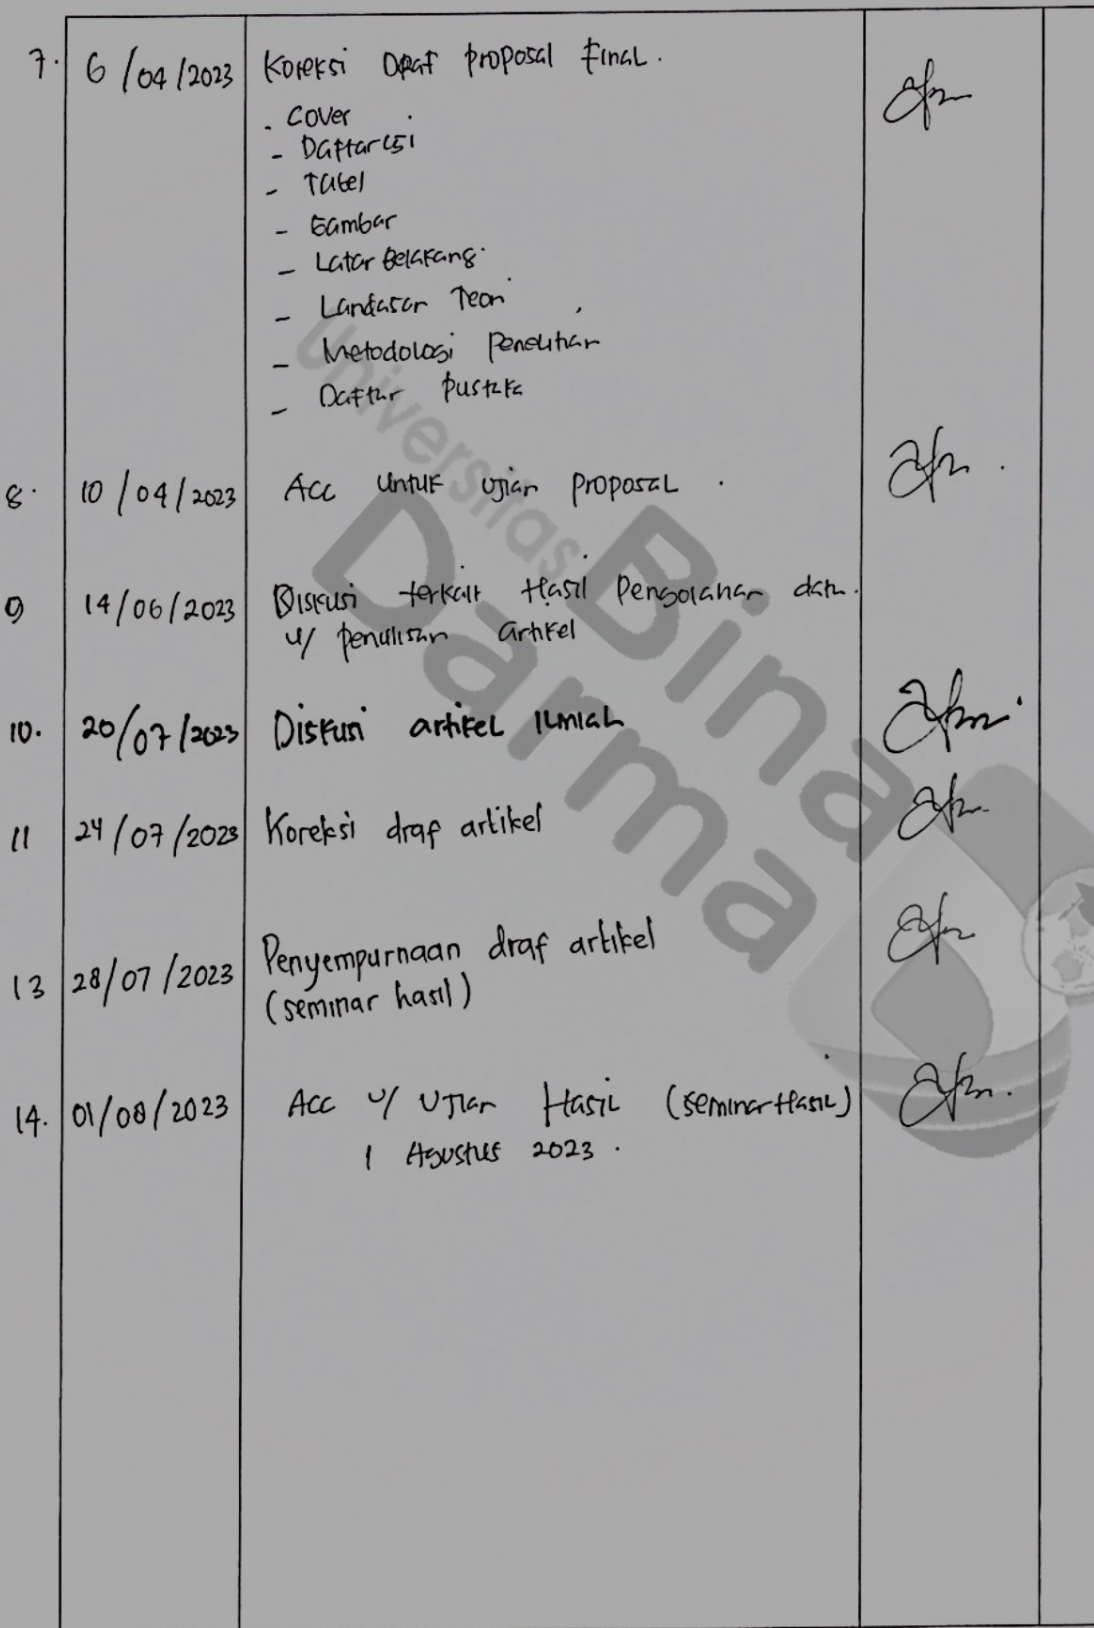 7. 6/04/2023 Koreksi Draf proposal Final.
- Cover
- Daftar isi
- Tabel
- Gambar
- Latar Belakang.
- Landasan Teori
- Metodologi Penelitian
- Daftar Pustaka
8. 10/04/2023 Acc untuk ujian proposal.
9 14/06/2023 Diskusi terkait Hasil Pengolahan data.
u/ penulisan artikel
10. 20/07/2023 Diskusi artikel Ilmiah
11 24/07/2023 Koreksi draf artikel
13 28/07/2023 Penyempurnaan draf artikel
(seminar hasil)
14. 01/08/2023 Acc u/ Ujian Hasil (seminar Hasil)
1 Agustus 2023.
Universitas
Bina
Darma